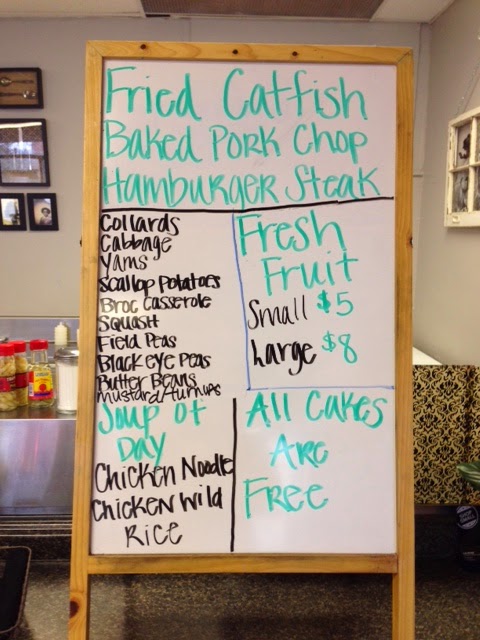 Fried Catfish
Baked Pork Chop
Hamburger Steak
Collards
Cabbage
Yams
Scallop Potatoes
Broc Casserole
Squash
Field Peas
Black eye Peas
Butter Beans
Mustard/turnups
Fresh
Fruit
Small $5
Large $8
Soup of
Day
Chicken Noodle
Chicken Wild
Rice
All Cakes
Are
Free